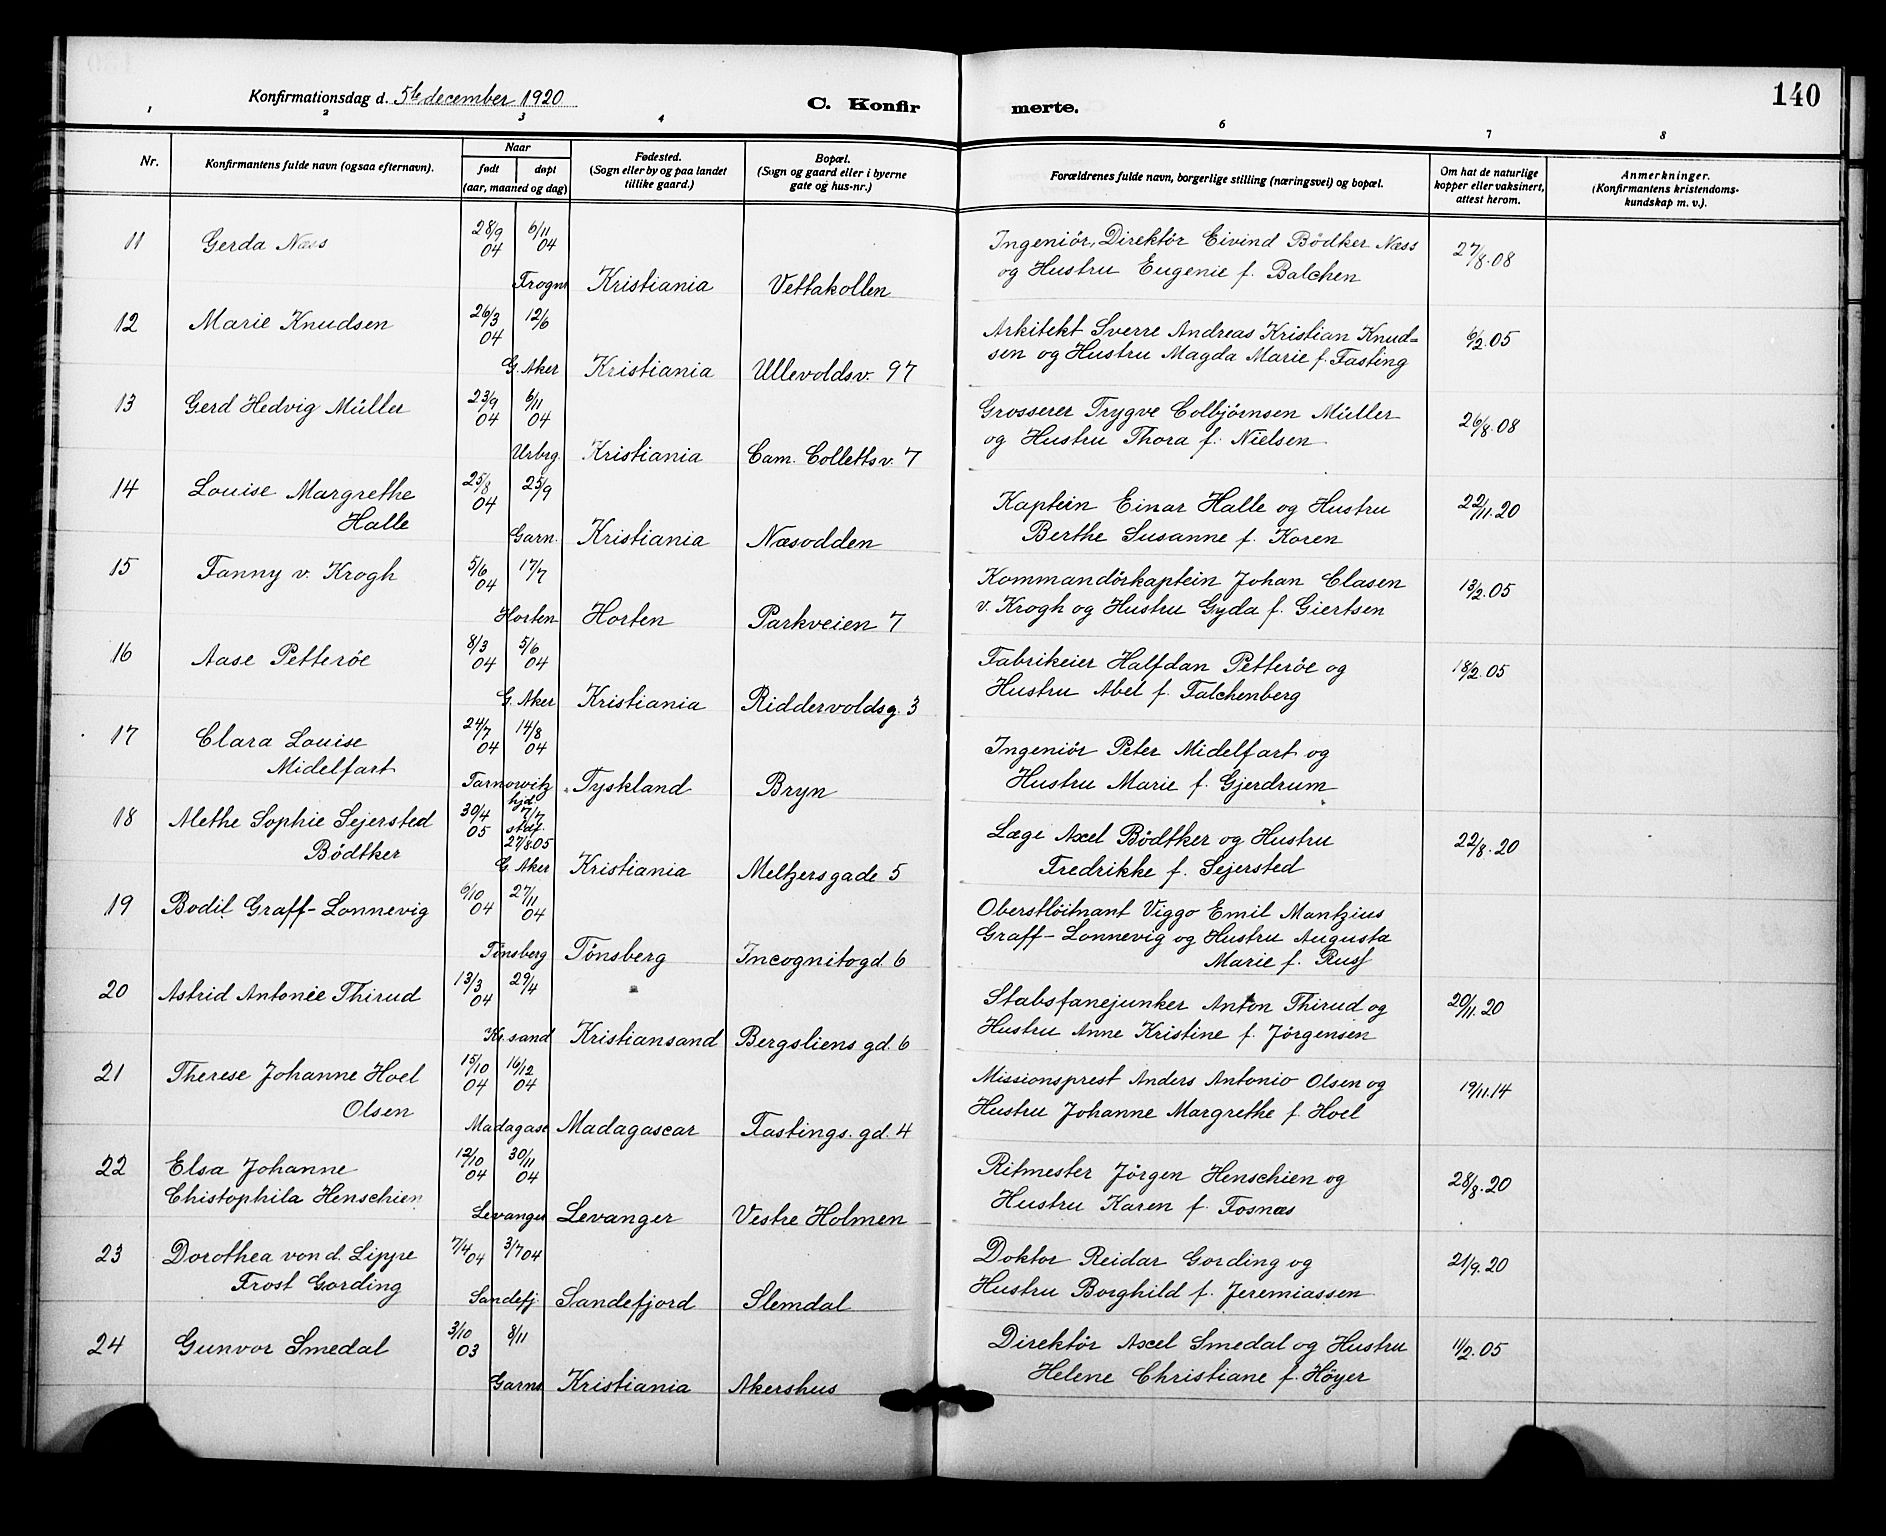 140
Konfirmationsdag d. 5te december 1920
C. Konfirmerte.
1 2 3 4 6 7 8
Nr.
Konfirmantens fulde navn (ogsaa efternavn).
Naar
født døpt
(aar, maaned og dag)
Fødested.
(Sogn eller by og paa landet
tillike gaard.)
Bopæl.
(Sogn og gaard eller i byerne
gate og hus-nr.)
Forældrenes fulde navn, borgerlige stilling (næringsvei) og bopæl.
Om hat de naturlige
kopper eller vaksinert,
attest herom.
Anmerkninger.
(Konfirmantens kristendoms-
kundskap m. v.).
11 Gerda Næss 28/9 04 6/11 04 Ingeniör, Direktör Eivind Bödker Næss 27/8.08
Frogn. Kristiania Vettakollen og Hustru Eugenie f. Balchen
12 Marie Knudsen 26/3 04 12/6 Arkitekt Sverre Andreas Kristian Knud= 6/2.05
G. Aker Kristiania Ullevoldsv. 97 sen og Hustru Magda Marie f. Fasting
13 Gerd Hedvig Müller 23/9 04 6/11 04 Grosserer Trygve Colbjörnsen Müller 26/8.08
Urbrg. Kristiania Cam. Collettsv. 7 og Hustru Thora f. Nielsen
14 Louise Margrethe 25/8 04 25/9 Kaptein Einar Halle og Hustru 22/11.20
Halle Garn. Kristiania Næsodden Berthe Susanne f. Koren
15 Fanny v. Krogh 5/6 04 17/7 Kommandörkaptein Johan Clasen 13/2.05
Horten Horten Parkveien 7 v. Krogh og Hustru Gyda f. Giertsen
16 Aase Petteröe 8/3 04 5/6 04 Fabrikeier Halfdan Petteröe og 18/2.05
G. Aker Kristiania Riddervoldsg. 3 Hustru Abel f. Falchenberg
17 Clara Louise 24/7 04 14/8 04 Ingeniör Peter Midelfart og
Midelfart Tarnowitz Tyskland Bryn Hustru Marie f. Gjerdrum
18 Methe Sophie Sejersted 30/4 05 hjd. 7/7 stadf. 27/8.05 Læge Axel Bödtker og Hustru 22/8.20
Bödtker G. Aker Kristiania Meltzersgade 5 Fredrikke f. Sejersted
19 Bodil Graff-Lonnevig 9/10 04 27/11 04 Oberstlöitnant Viggo Emil Mantzius
Graff-Lonnevig og Hustru Augusta
Tönsberg Tönsberg Incognitogd. 6 Marie f. Rusf
20 Astrid Antonie Thirud 13/3 04 29/4 Stabsfanejunker Anton Thirud og 20/11.20
Kr.sand Kristiansand Bergsliens gd. 6 Hustru Anne Kristine f. Jörgensen
21 Therese Johanne Hoel 15/10 04 16/12 04 Missionsprest Anders Antonio Olsen og 19/11.14
Olsen Madagasc Madagascar Fastings. gd. 4 Hustru Johanne Margrethe f. Hoel
22 Elsa Johanne 12/10 04 30/11 04 Ritmester Jörgen Henschien og 28/8.20
Chistophila Henschien Levanger Levanger Vestre Holmen Hustru Karen f. Fosnæs
23 Dorothea von d. Lippe 7/4 04 3/7 04 Doktor Reidar Gording og 21/9.20
Frost Gording Sandefj Sandefjord Slemdal Hustru Borghild f. Jeremiassen
24 Gunvor Smedal 3/10 03 8/11 Direktör Axel Smedal og Hustru 11/2.05
Garns. Kristiania Akershus Helene Christiane f. Höyer